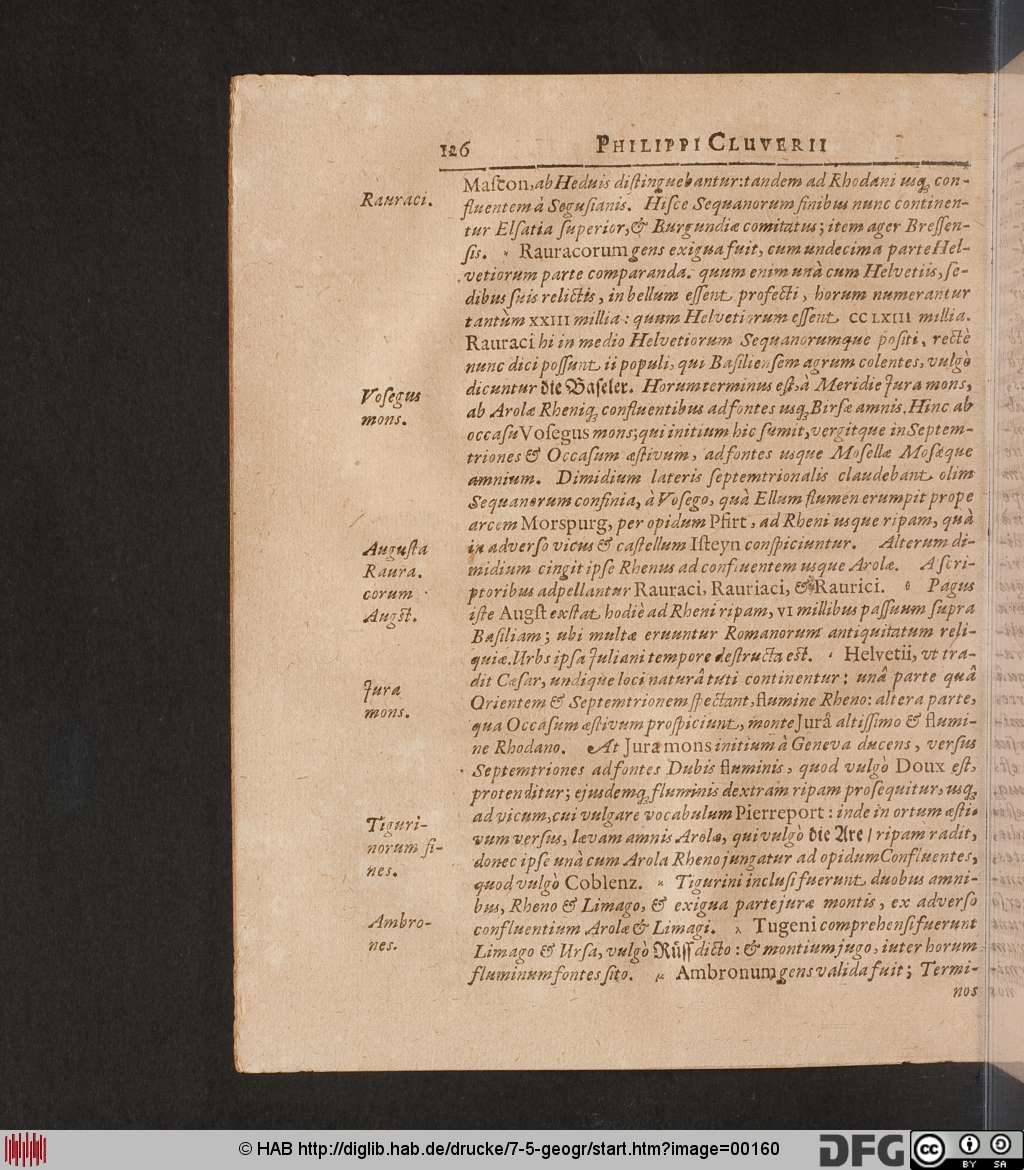 126 PHILIPPI CLUVERII
Rauraci.
Vosegus
mons.
Augusta
Raura.
corum
Augst.
Jura
mons.
Tiguri-
norum fi-
nes.
Ambro-
nes.
Mascon, ab Heduis distinguebantur: tandem ad Rhodani usq; con-
fluentem à Segusianis. Hisce Sequanorum finibus nunc continen-
tur Elsatia superior, & Burgundiæ comitatus; item ager Bressen-
sis. Rauracorum gens exigua fuit, cum undecima parte Hel-
vetiorum parte comparanda. quum enim unà cum Helvetiis, se-
dibus suis relictis, in bellum essent profecti, horum numerantur
tantùm XXIII millia: quum Helvetiorum essent CCLXIII millia.
Rauraci hi in medio Helvetiorum Sequanorumque positi, rectè
nunc dici possunt ii populi, qui Basiliensem agrum colentes, vulgò
dicuntur die Baseler. Horum terminus est, à Meridie Jura mons,
ab Arolæ Rheniq; confluentibus ad fontes usq; Birsæ amnis. Hinc ab
occasu Vosegus mons; qui initium hic sumit, vergitque in Septem-
triones & Occasum æstivum, ad fontes usque Mosellæ Mosæque
amnium. Dimidium lateris septemtrionalis claudebant olim
Sequanorum confinia, à Vosego, quà Ellum flumen erumpit prope
arcem Morspurg, per opidum Pfirt, ad Rheni usque ripam, quà
in adverso vicus & castellum Isteyn conspiciuntur. Alterum di-
midium cingit ipse Rhenus ad confluentem usque Arolæ. A scri-
ptoribus adpellantur Rauraci, Rauriaci, & Raurici. Pagus
iste Augst exstat hodiè ad Rheni ripam, VI millibus passuum supra
Basiliam; ubi multæ eruuntur Romanorum antiquitatum reli-
quiæ. Urbs ipsa Juliani tempore destructa est. Helvetii, vt tra-
dit Cæsar, undique loci naturâ tuti continentur: unâ parte quâ
Orientem & Septemtrionem spectant, flumine Rheno: altera parte,
qua Occasum æstivum prospiciunt, monte Jurâ altissimo & flumi-
ne Rhodano. At Jura mons initium à Geneva ducens, versus
Septemtriones ad fontes Dubis fluminis, quod vulgò Doux est,
protenditur; ejusdemq; fluminis dextram ripam prosequitur, usq;
ad vicum, cui vulgare vocabulum Pierreport: inde in ortum æsti-
vum versus, lævam amnis Arolæ, qui vulgò die Are / ripam radit,
donec ipse unà cum Arola Rheno jungatur ad opidum Confluentes,
quod vulgò Coblenz. Tigurini inclusi fuerunt duobus amni-
bus, Rheno & Limago, & exigua parte juræ montis, ex adverso
confluentium Arolæ & Limagi. λ Tugeni comprehensi fuerunt
Limago & Ursa, vulgò Rüss dicto: & montium jugo, iuter horum
fluminum fontes sito. μ Ambronum gens valida fuit; Termi-
nos
© HAB http://diglib.hab.de/drucke/7-5-geogr/start.htm?image=00160
DFG
cc BY SA